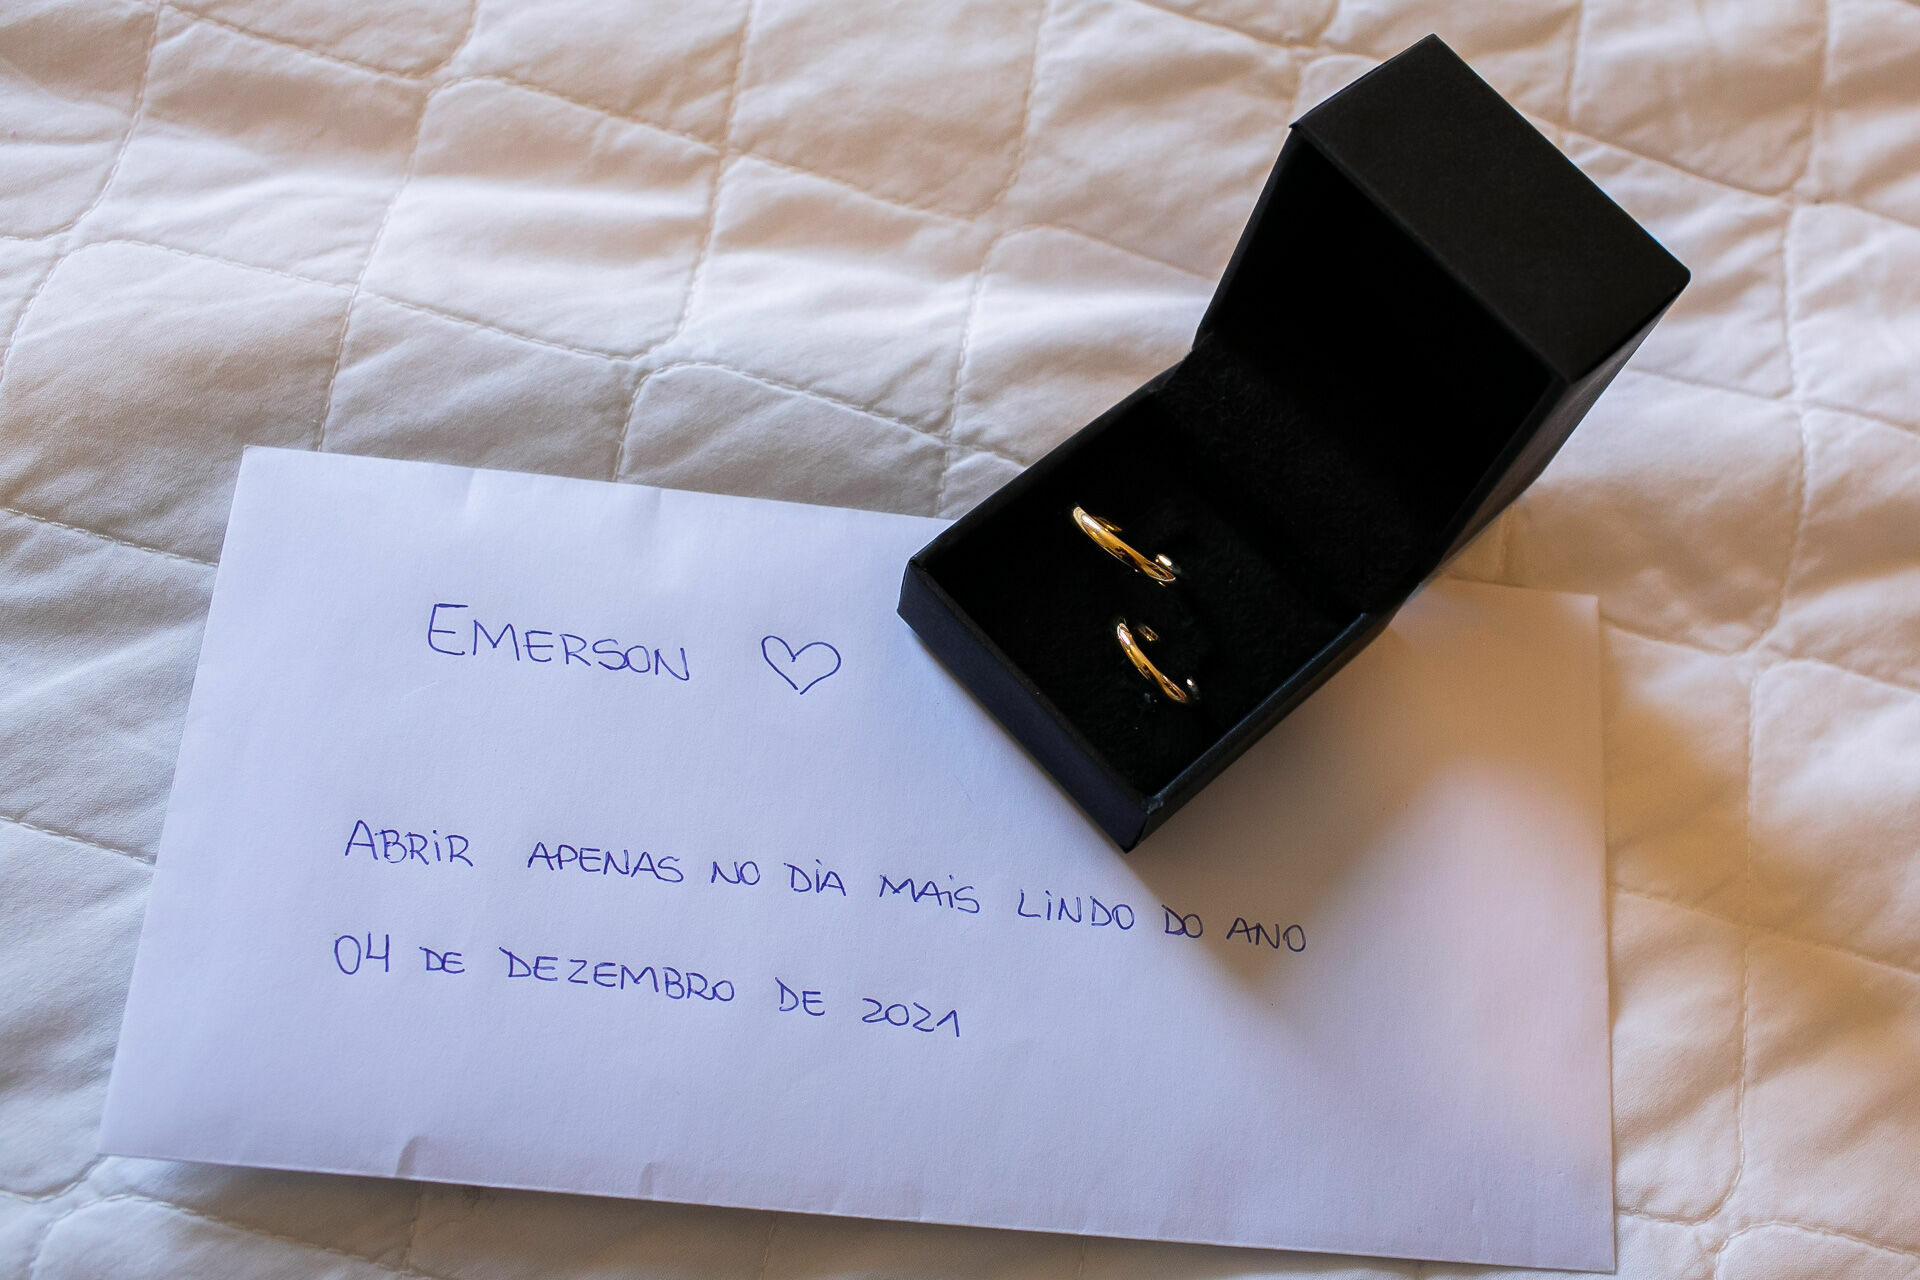 EMERSON ♡
ABRIR APENAS NO DIA MAIS LINDO DO ANO
04 DE DEZEMBRO DE 2021